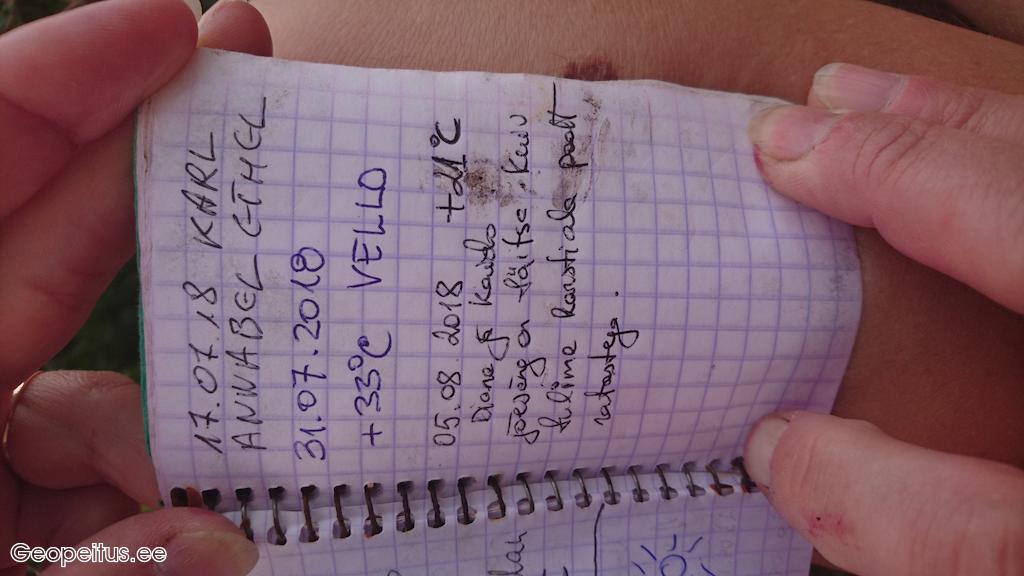 17.07.18 KARL
ANNABEL ETHEL
31.07.2018
+33°C VELLO
05.08.2018 +21°C
Diane ja Kaido
jõeäng on täitsa kuiv
tulime kanstiala poolt
ratastega.
dan
Geopeitus.ee